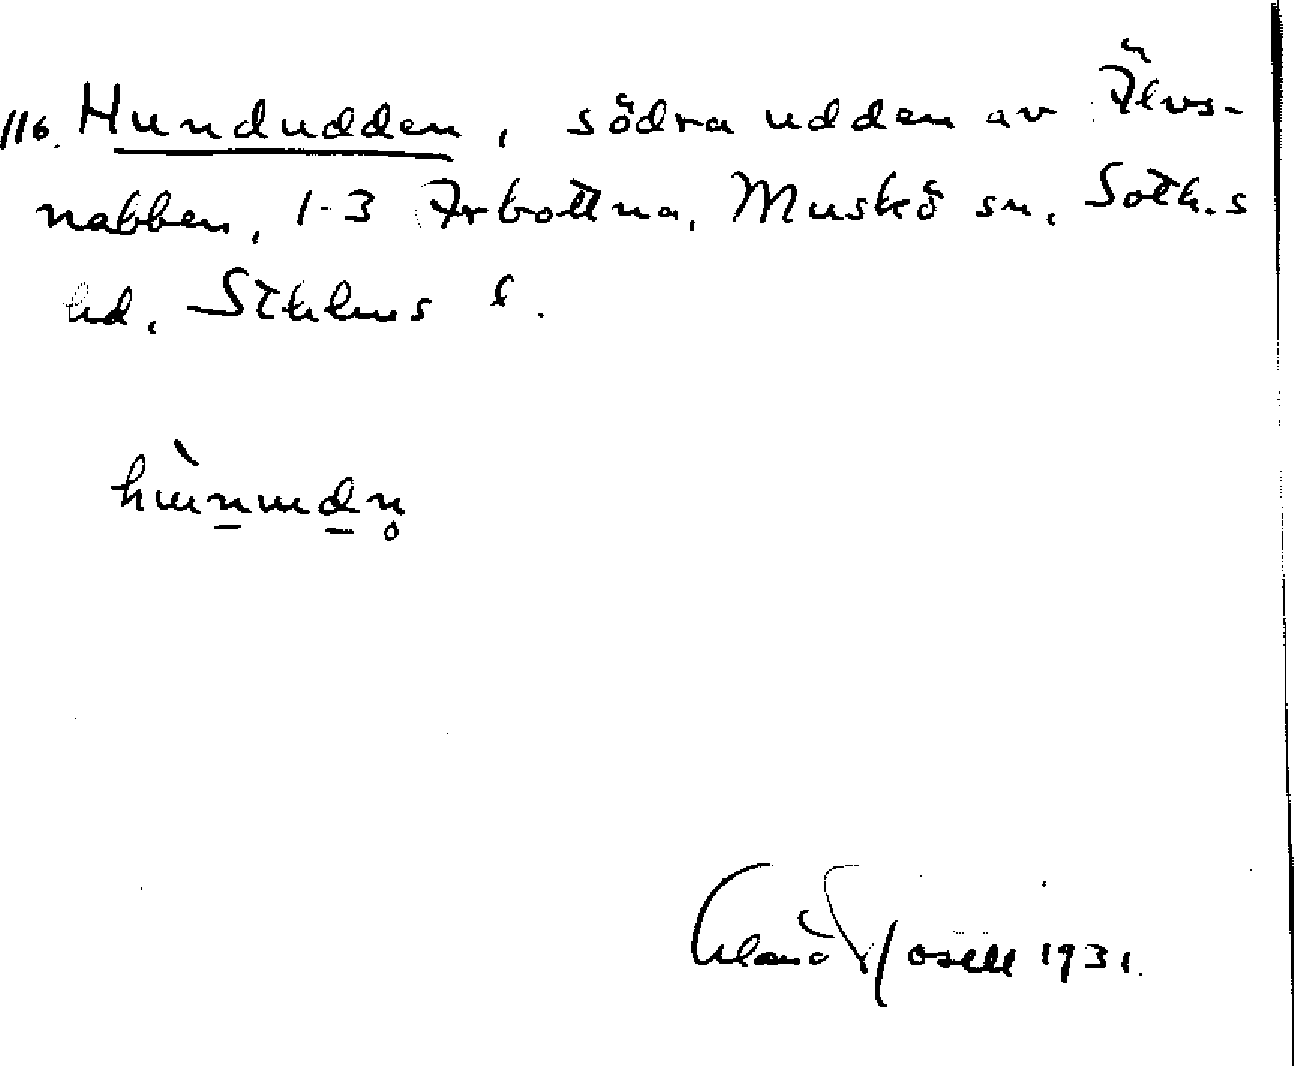 116. Hundudden, södra udden av Älvs-
nabben, 1-3 Arbottna, Muskö sn, Soth.s
hd, Sthlms l.
Erland Rosell 1931.